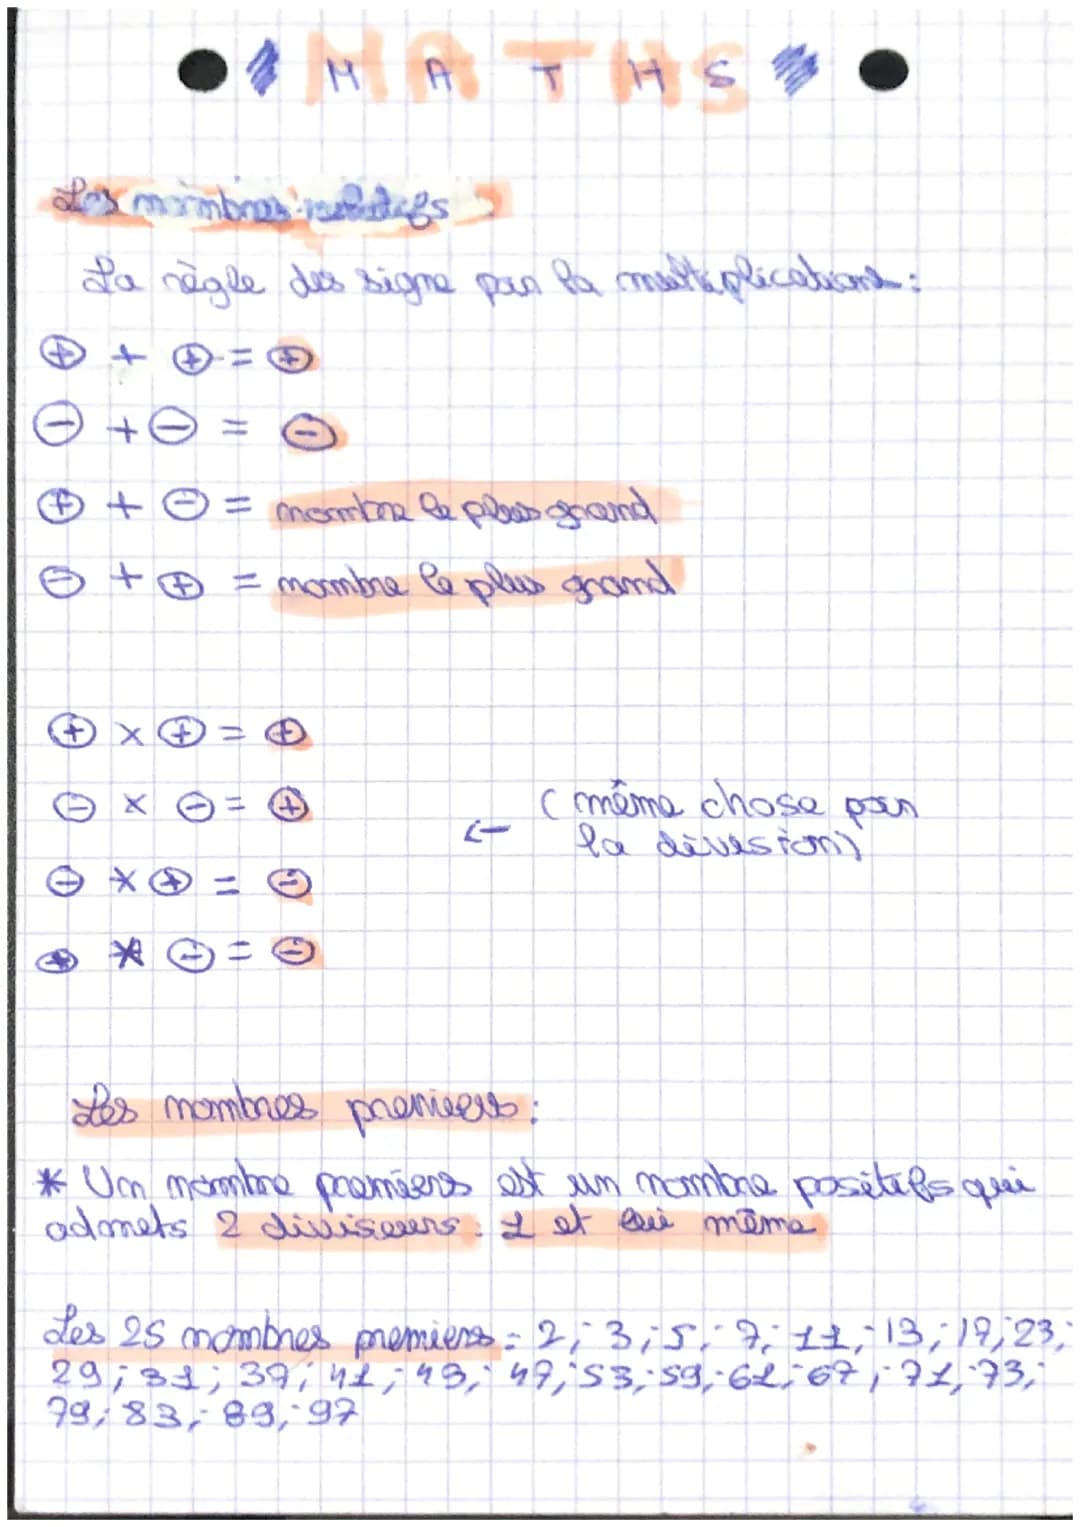 MATHS
Les nombres relatifs
La règle des signe par la multiplications :
⊕ + ⊕ = ⊕
⊖ + ⊖ = ⊖
⊕ + ⊖ = nombre le plus grand
⊖ + ⊕ = nombre le plus grand
⊕ × ⊕ = ⊕
⊖ × ⊖ = ⊕
← (même chose pour
la division)
⊖ * ⊕ = ⊖
⊕ * ⊖ = ⊖
Les nombres premiers :
* Un nombre premiers est un nombre positifs qui
admets 2 diviseurs : 1 et lui même
Les 25 nombres premiers = 2; 3; 5; 7; 11; 13; 19; 23;
29; 31; 37; 41; 43; 47; 53; 59; 61; 67; 71; 73;
79; 83; 89; 97